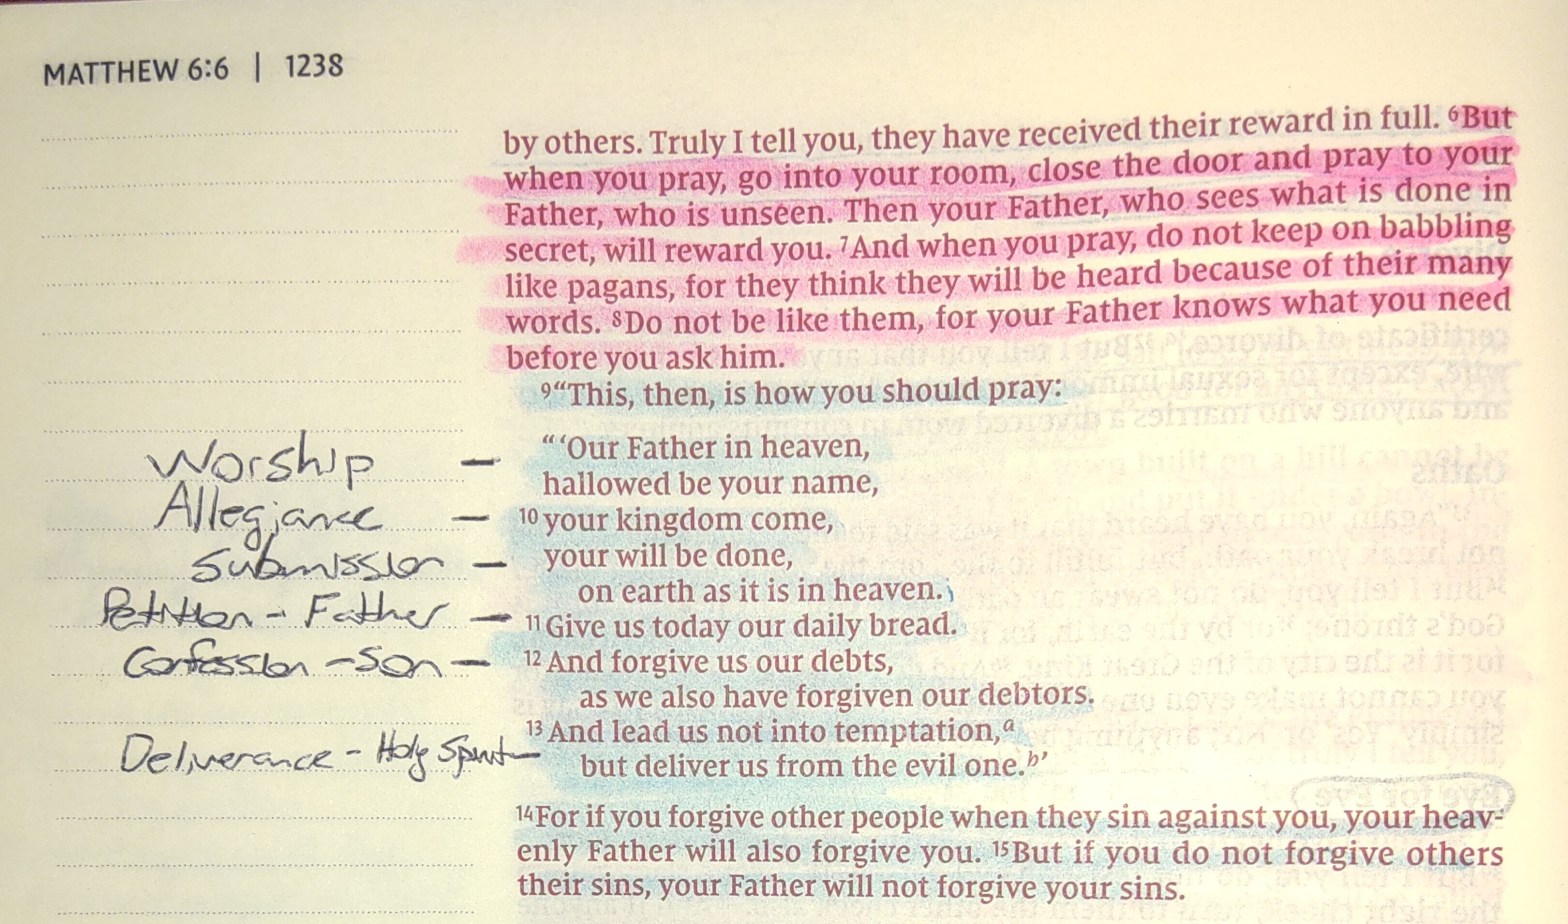 MATTHEW 6:6 | 1238
by others. Truly I tell you, they have received their reward in full. ⁶But
when you pray, go into your room, close the door and pray to your
Father, who is unseen. Then your Father, who sees what is done in
secret, will reward you. ⁷And when you pray, do not keep on babbling
like pagans, for they think they will be heard because of their many
words. ⁸Do not be like them, for your Father knows what you need
before you ask him.
⁹“This, then, is how you should pray:
Worship – “‘Our Father in heaven,
hallowed be your name,
Allegiance – ¹⁰your kingdom come,
Submission – your will be done,
on earth as it is in heaven.
Petition - Father – ¹¹Give us today our daily bread.
Confession - Son – ¹²And forgive us our debts,
as we also have forgiven our debtors.
¹³And lead us not into temptation,ᵃ
Deliverance - Holy Spirit – but deliver us from the evil one.ᵇ’
¹⁴For if you forgive other people when they sin against you, your heav-
enly Father will also forgive you. ¹⁵But if you do not forgive others
their sins, your Father will not forgive your sins.